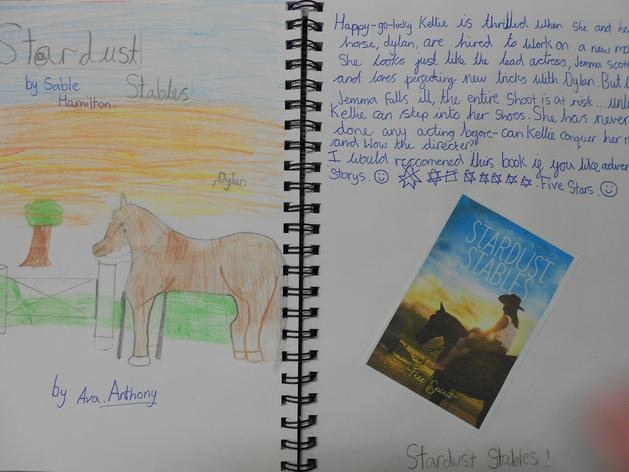 Stardust
by Sable
Hamilton.
Stables
Dylan
by Ava. Anthony
Happy-go-lucky Kellie is thrilled when she and he
horse, dylan, are hired to work on a new mo
She looks just like the lead actress, Jemma Scot
and loves perfecting new tricks with Dylan. But
Jemma falls ill, the entire shoot is at risk... unl
Kellie can step into her shoes. She has never
done any acting before-can Kellie conquer her n
and wow the director?
I would reccomened this book if you like adven
Storys. Five Stars.
STARDUST
STABLES
Free Spirit
Stardust Stables!